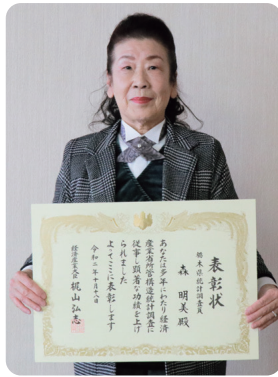 表彰状
栃木県統計調査員
森 明美殿
あなたは多年にわたり経済
産業省所管構造統計調査に
従事し顕著な功績を上げ
られました
よってここに表彰します
令和二年十月十八日
経済産業大臣 梶山弘志